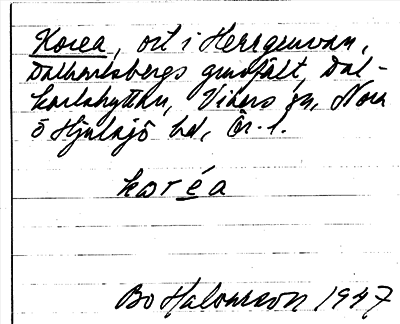 Korea, ort i Herrgruvan,
Dalkarlsbergs gruvfält, Dal-
karlshyttan, Vikers sn, Nora
o Hjulsjö hd, Ör. l.
koréa
Bo 1947